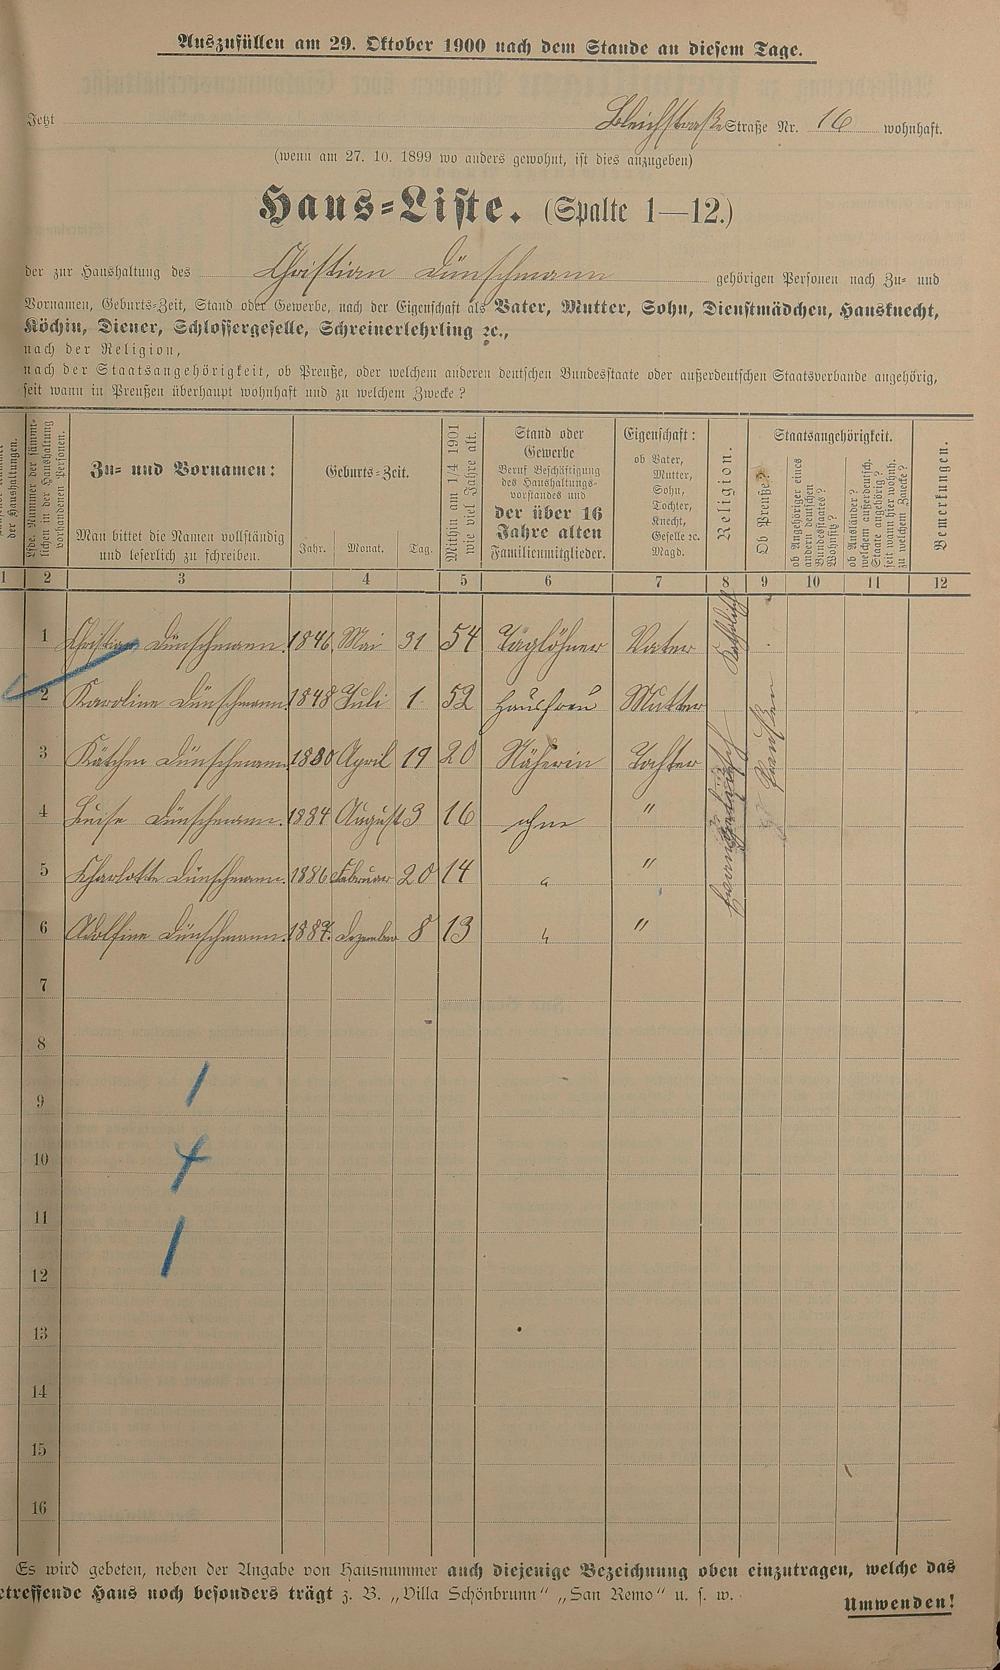 Auszufüllen am 29. Oktober 1900 nach dem Stande an diesem Tage.
Jetzt Bleichstraße Straße Nr. 16 wohnhaft.
(wenn am 27. 10. 1899 wo anders gewohnt, ist dies anzugeben)
Haus-Liste. (Spalte 1—12.)
der zur Haushaltung des Christian Dünschmann gehörigen Personen nach Zu- und
Vornamen, Geburts-Zeit, Stand oder Gewerbe, nach der Eigenschaft als Vater, Mutter, Sohn, Dienstmädchen, Hausknecht,
Köchin, Diener, Schlossergeselle, Schreinerlehrling ꝛc.,
nach der Religion,
nach der Staatsangehörigkeit, ob Preuße, oder welchem anderen deutschen Bundesstaate oder außerdeutschen Staatsverbande angehörig,
seit wann in Preußen überhaupt wohnhaft und zu welchem Zwecke?
der Haushaltungen.
Lfde. Nummer der sämmtlichen in der Haushaltung vorhandenen Personen.
Zu- und Vornamen:
Man bittet die Namen vollständig
und leserlich zu schreiben.
Geburts-Zeit.
Jahr. Monat. Tag.
Mithin am 1/4 1901
wie viel Jahre alt.
Stand oder
Gewerbe
Beruf Beschäftigung
des Haushaltungs-
vorstandes und
der über 16
Jahre alten
Familienmitglieder.
Eigenschaft:
ob Vater,
Mutter,
Sohn,
Tochter,
Knecht,
Geselle ꝛc.
Magd.
Religion.
Staatsangehörigkeit.
Ob Preuße?
ob Angehöriger eines
andern deutschen
Bundesstaates?
Wohnsitz?
ob Ausländer?
welchem außerdeutsch.
Staate angehörig?
seit wann hier wohnh.
zu welchem Zwecke?
Bemerkungen.
1 2 3 4 5 6 7 8 9 10 11 12
1 Christian Dünschmann. 1846. Mai 31 54 Taglöhner Vater Katholisch
2 Karoline Dünschmann. 1848 Juli 1. 52 Hausfrau Mutter
3 Kätchen Dünschmann. 1880 April 19 20 Näherin Tochter Preußen
4 Luise Dünschmann. 1884 August 3 16 ohne "
5 Charlotte Dünschmann. 1886 Februar 20 14 " "
6 Adolfine Dünschmann. 1887. Dezember 8 13 " "
7
8
9
10
11
12
13
14
15
16
Es wird gebeten, neben der Angabe von Hausnummer auch diejenige Bezeichnung oben einzutragen, welche das
etreffende Haus noch besonders trägt z. B. „Villa Schönbrunn“ „San Remo“ u. s. w.
Umwenden!